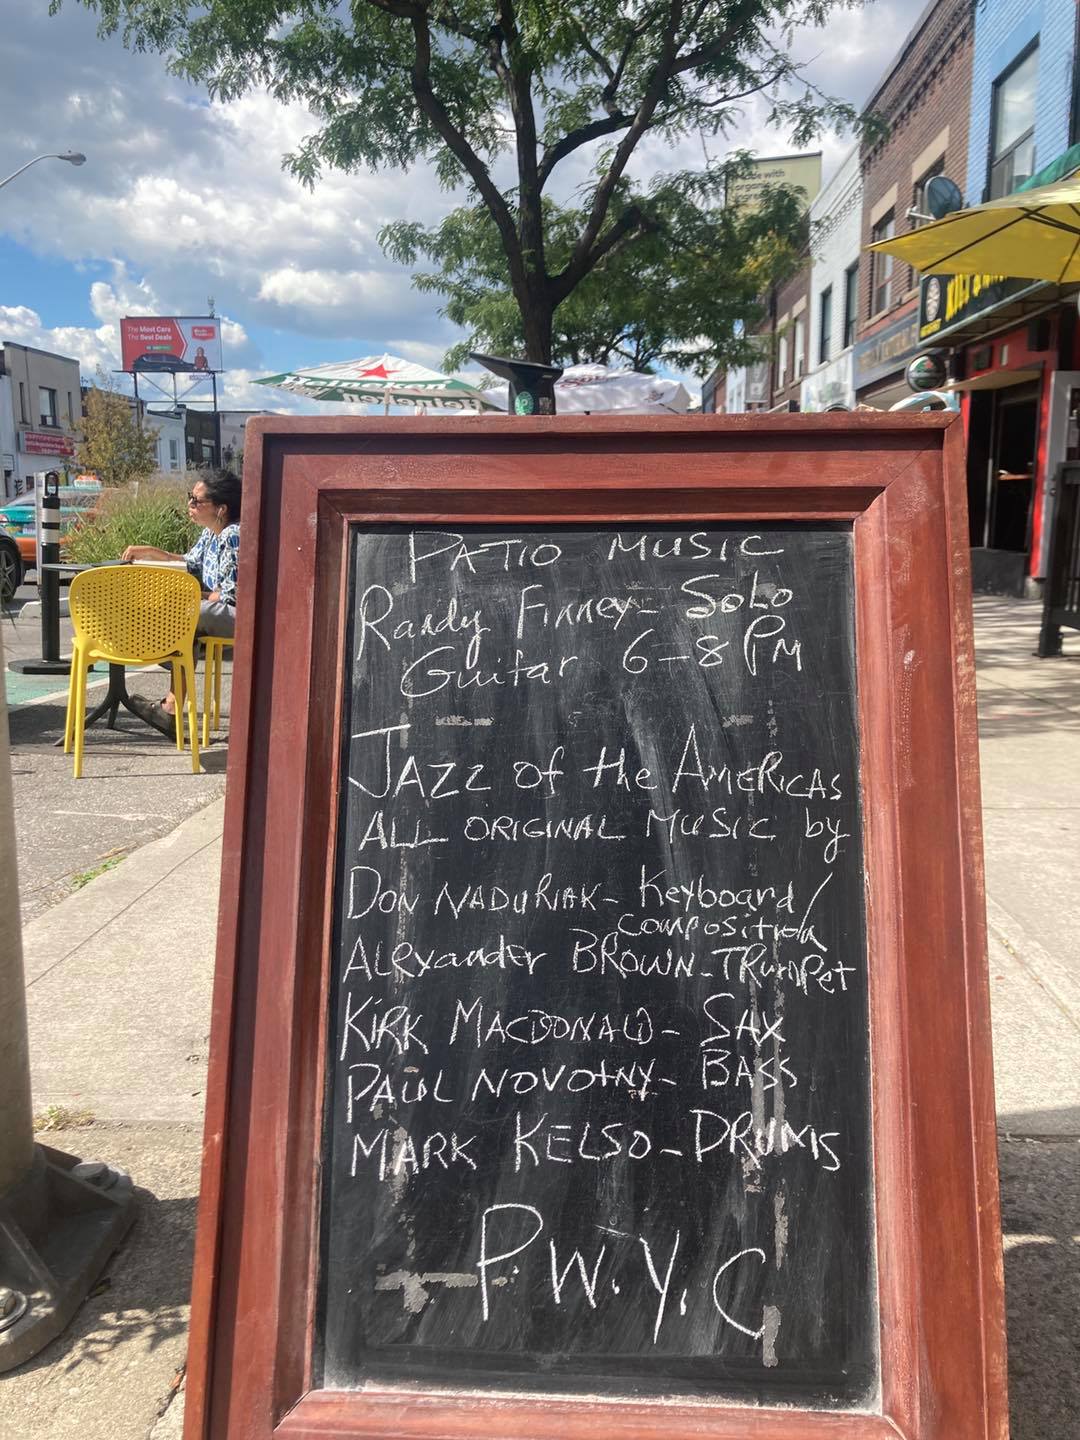 made with
organic
The Most Cars
The Best Deals
Heineken
Heineken
PATIO MUSIC
Randy Finney - Solo
Guitar 6-8 PM
JAZZ of the AMERICAS
ALL ORIGINAL MUSIC by
DON NADURIAK - Keyboard/
composition
Alexander BROWN - TRumPet
KIRK MACDONALD - SAX
PAUL NOVOTNY - BASS
MARK KELSO - DRUMS
P.W.Y.C